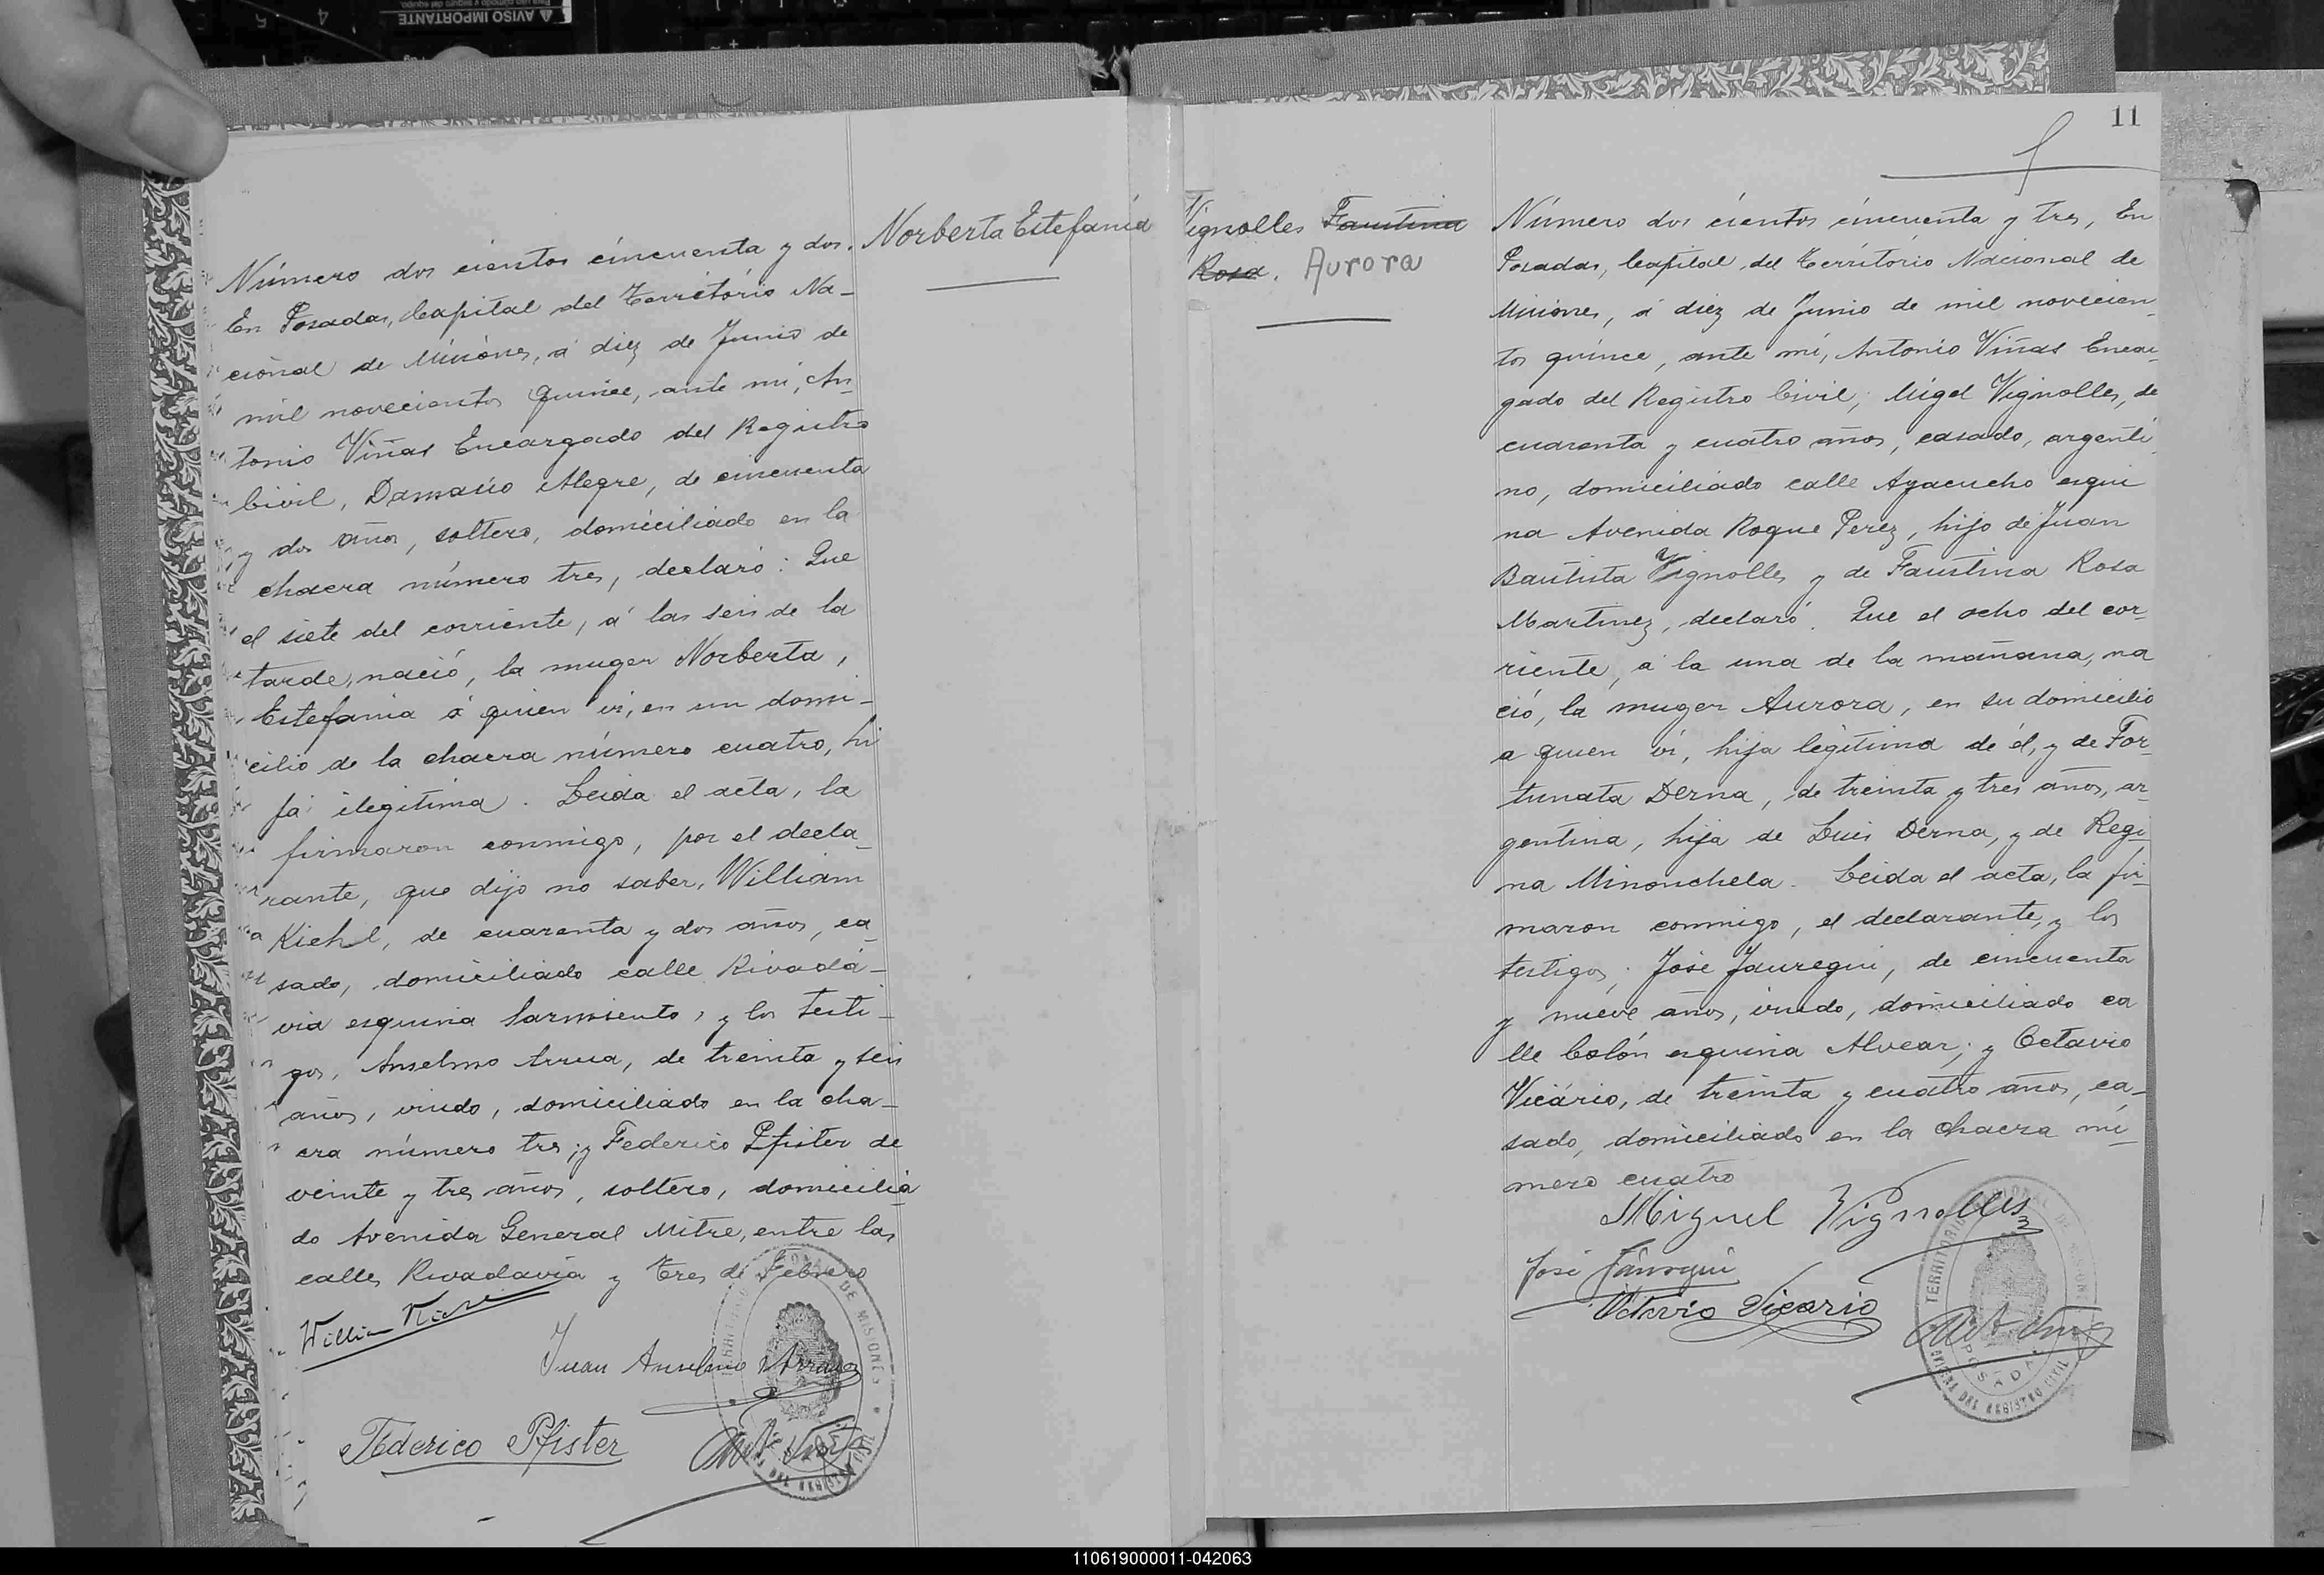 AVISO IMPORTANTE
Norberta Estefanía
Número dos cientos cincuenta y dos.
En Posadas, Capital del Território Na-
cional de Misiones, á diez de Junio de
mil novecientos quince, ante mí, An-
tonio Viñas Encargado del Registro
Civil, Damasio Alegre, de cincuenta
y dos años, soltero, domiciliado en la
chacra número tres, declaró: Que
el siete del corriente, á las seis de la
tarde, nació, la muger Norberta,
Estefania á quien vi, en un domi-
cilio de la chacra número cuatro, hi
ja ilegitima. Leida el acta, la
firmaron conmigo, por el decla-
rante, que dijo no saber, William
Kiehl, de cuarenta y dos años, ca-
sado, domiciliado calle Rivadá-
via esquina Sarmiento, y los testi-
gos, Anselmo Arrua, de treinta y seis
años, viudo, domiciliado en la cha-
cra número tres; y Federico Pfister de
veinte y tres años, soltero, domicilia
do Avenida General Mitre, entre las
calles Rivadavia y Tres de Febrero
William Kiehl
Juan Anselmo Arrua
Federico Pfister
11
Vignolles Faustina
Rosa. Aurora
Número dos cientos cincuenta y tres, En
Posadas, Capital del Território Nacional de
Misiones, á diez de Junio de mil novecien
tos quince, ante mí, Antonio Viñas Encar-
gado del Registro Civil; Migel Vignolles, de
cuarenta y cuatro años, casado, argenti
no, domiciliado calle Ayacucho esqui
na Avenida Roque Perez, hijo de Juan
Bautista Vignolles y de Faustina Rosa
Martinez, declaró. Que el ocho del cor-
riente, á la una de la mañana, na
ció, la muger Aurora, en su domicilio
a quien vi, hija legitima de él, y de For-
tunata Derna, de treinta y tres años, ar-
gentina, hija de Luis Derna, y de Regi-
na Minonchela. Leida el acta, la fir-
maron conmigo, el declarante, y los
testigos; José Jauregui, de cincuenta
y nueve años, viudo, domiciliado ca
lle Colón esquina Alvear; y Octavio
Vicário, de treinta y cuatro años, ca-
sado, domiciliado en la chacra nú-
mero cuatro
Miguel Vignolles
José Jauregui
Octavio Vicario
TERRITORIO NACIONAL DE MISIONES
POSADAS
OFICINA DEL REGISTRO CIVIL
110619000011-042063